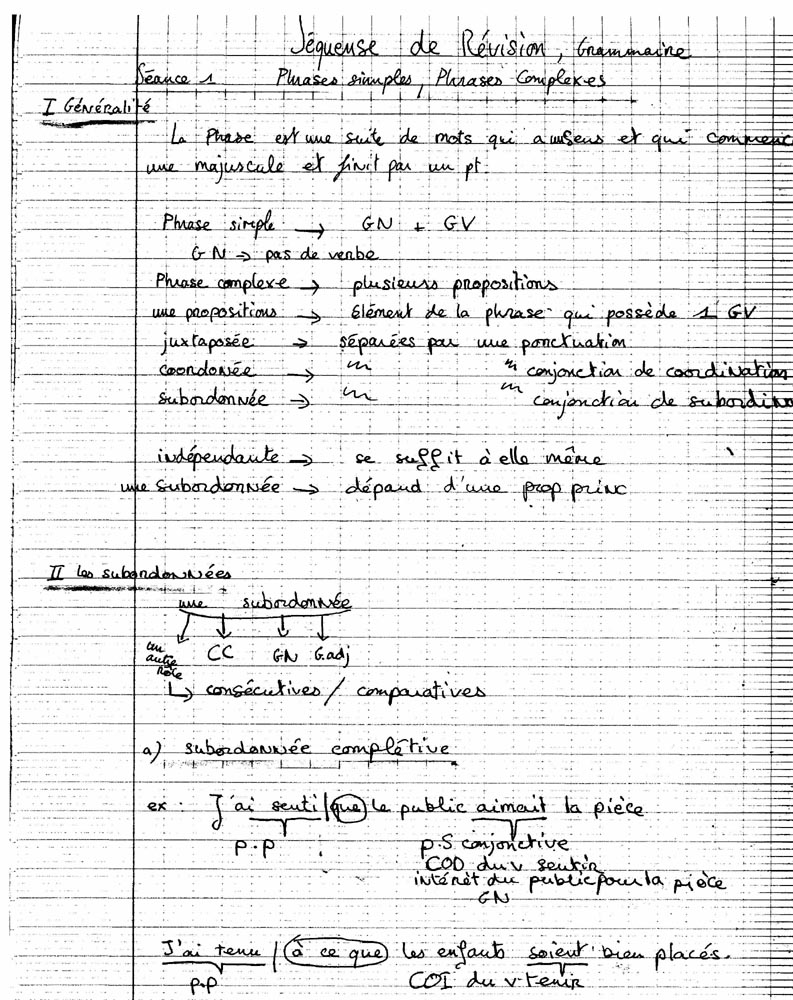 Séquense de Révision, Grammaire
Séance 1 Phrases simples, Phrases Complexes
I Généralité
La Phase est une suite de mots qui a un sens et qui commenc
une majuscule et finit par un pt.
Phrase simple → GN + GV
GN → pas de verbe
Phrase complexe → plusieurs propositions
une propositions → élément de la phrase qui possède 1 GV
juxtaposée → séparées par une ponctuation
coordonée → " " conjonction de coordination
subordonnée → " " conjonction de subordin
indépendante → se suffit à elle même
une subordonnée → dépand d'une prop princ
II les subordonnées
une subordonnée
un autre rôle CC GN G.adj
↳ consécutives / comparatives
a) subordonnée complétive
ex : J'ai senti / que le public aimait la pièce
p.p p.S conjonctive
COD du v sentir
intérêt du public pour la pièce
GN
J'ai tenu / à ce que les enfants soient bien placés.
p.p COI du v. tenir